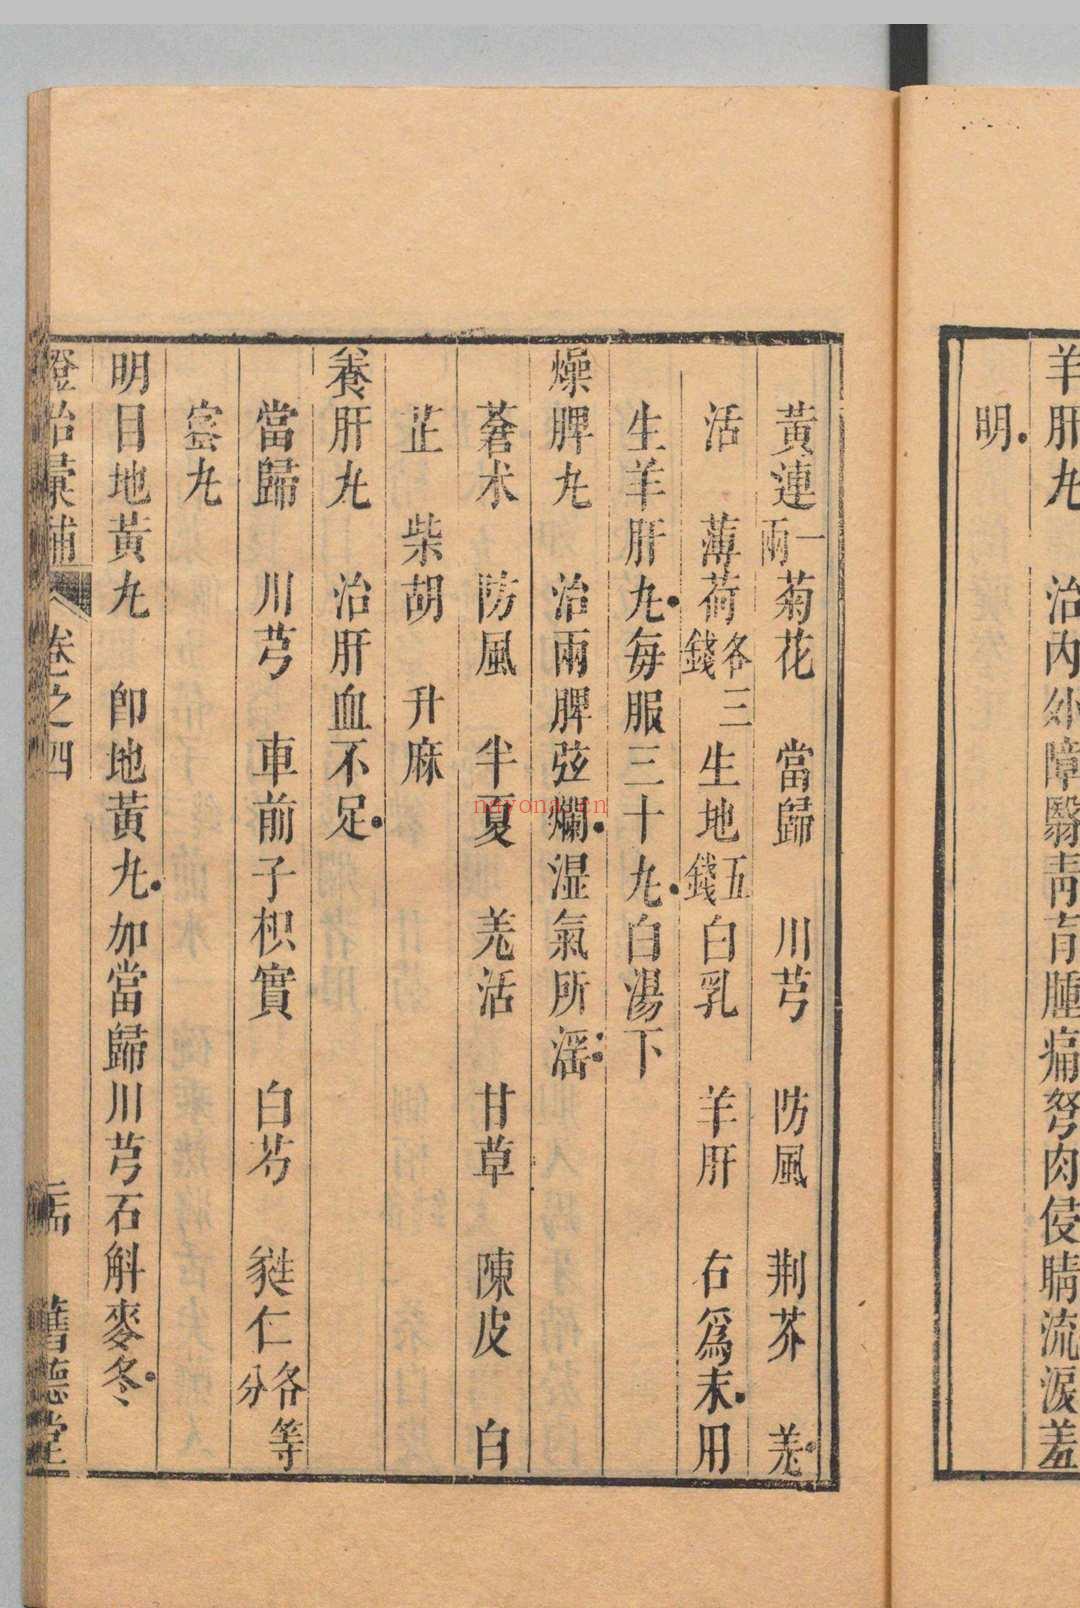 羊肝九　治內外障翳青盲腫痛努肉侵睛流淚羞
明
黃連一兩菊花　當歸　川芎　防風　荆芥　羌
活　薄荷各三錢生地五錢白乳　羊肝　右爲末用
生羊肝九每服三十九白湯下
燥脾九　治兩脾弦爛湿氣所滛
蒼术　防風　半夏　羌活　甘草　陳皮　白
芷　柴胡　升麻
養肝九　治肝血不足
當歸　川芎　車前子枳實　白芍　蕤仁各等分
蜜九
明目地黃九　卽地黃九加當歸川芎石斛麥冬
證治彙補　卷之四　舊德堂
nayona.cn